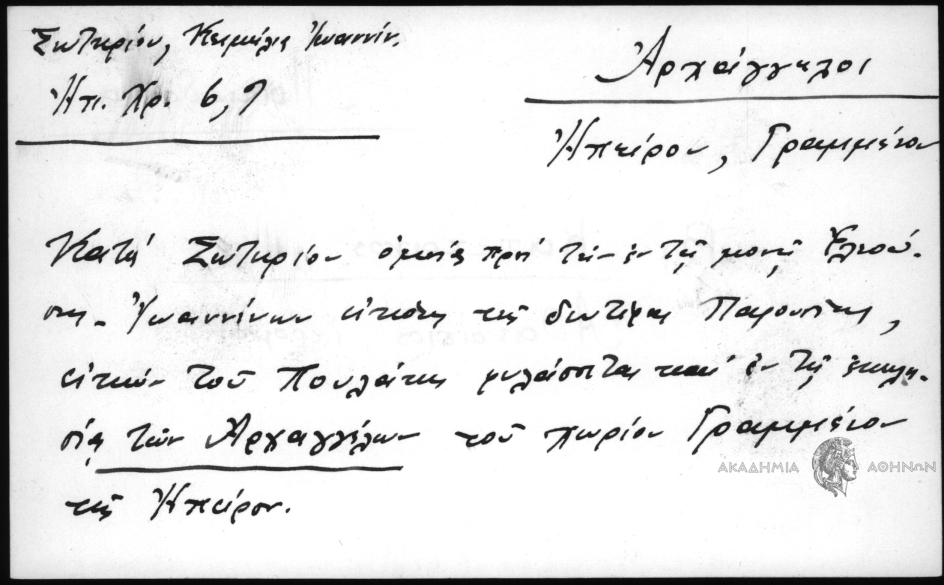 Σωτηρίου, Κειμήλια Ἰωαννίν.
Ἠπ. Χρ. 6, 9
Ἀρχάγγελοι
Ἠπείρου, Γραμμένου
Κατὰ Σωτηρίου ὁμοία πρὸς τὴν ἐν τῇ μονῇ Ἐλεού-
σης Ἰωαννίνων εἰκόνα τῆς δευτέρας Παρουσίας,
εἰκὼν τοῦ Πουλάκη φυλάσσεται καὶ ἐν τῇ ἐκκλη-
σίᾳ τῶν Ἀρχαγγέλων τοῦ χωρίου Γραμμένου
τῆς Ἠπείρου.
ΑΚΑΔΗΜΙΑ ΑΘΗΝΩΝ